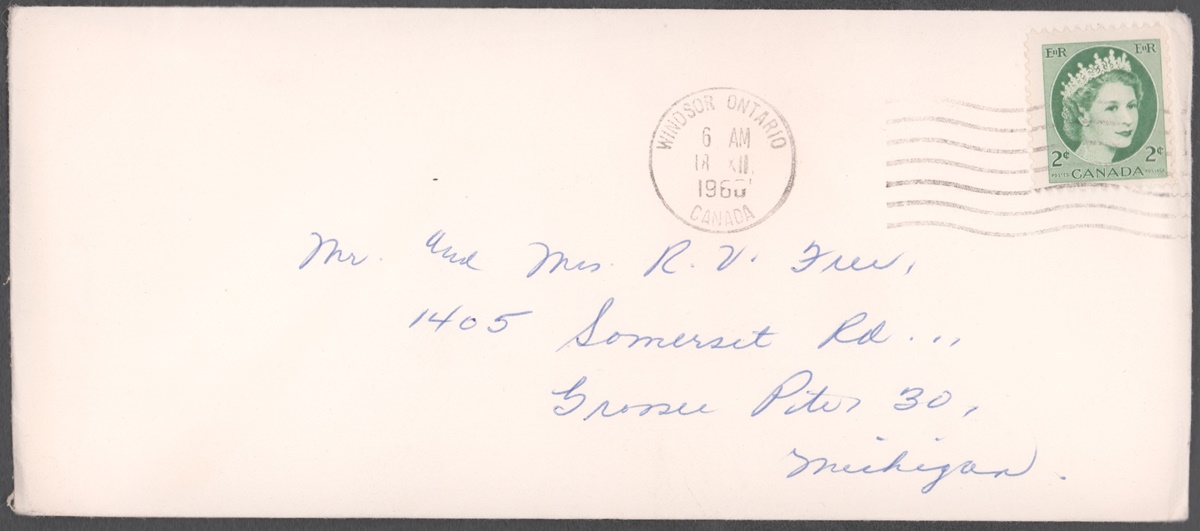 WINDSOR ONTARIO
6 AM
18 XII
1960
CANADA
EIIR EIIR
2¢ 2¢
POSTES CANADA POSTAGE
Mr. and Mrs. R. V. Free,
1405 Somerset Rd...
Grosse Pite 30,
Michigan.